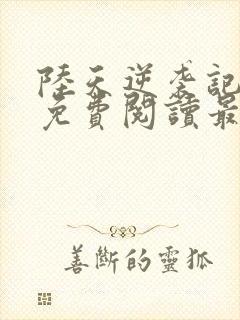 陸天逆袭記
免費閱讀最
善斷的靈狐